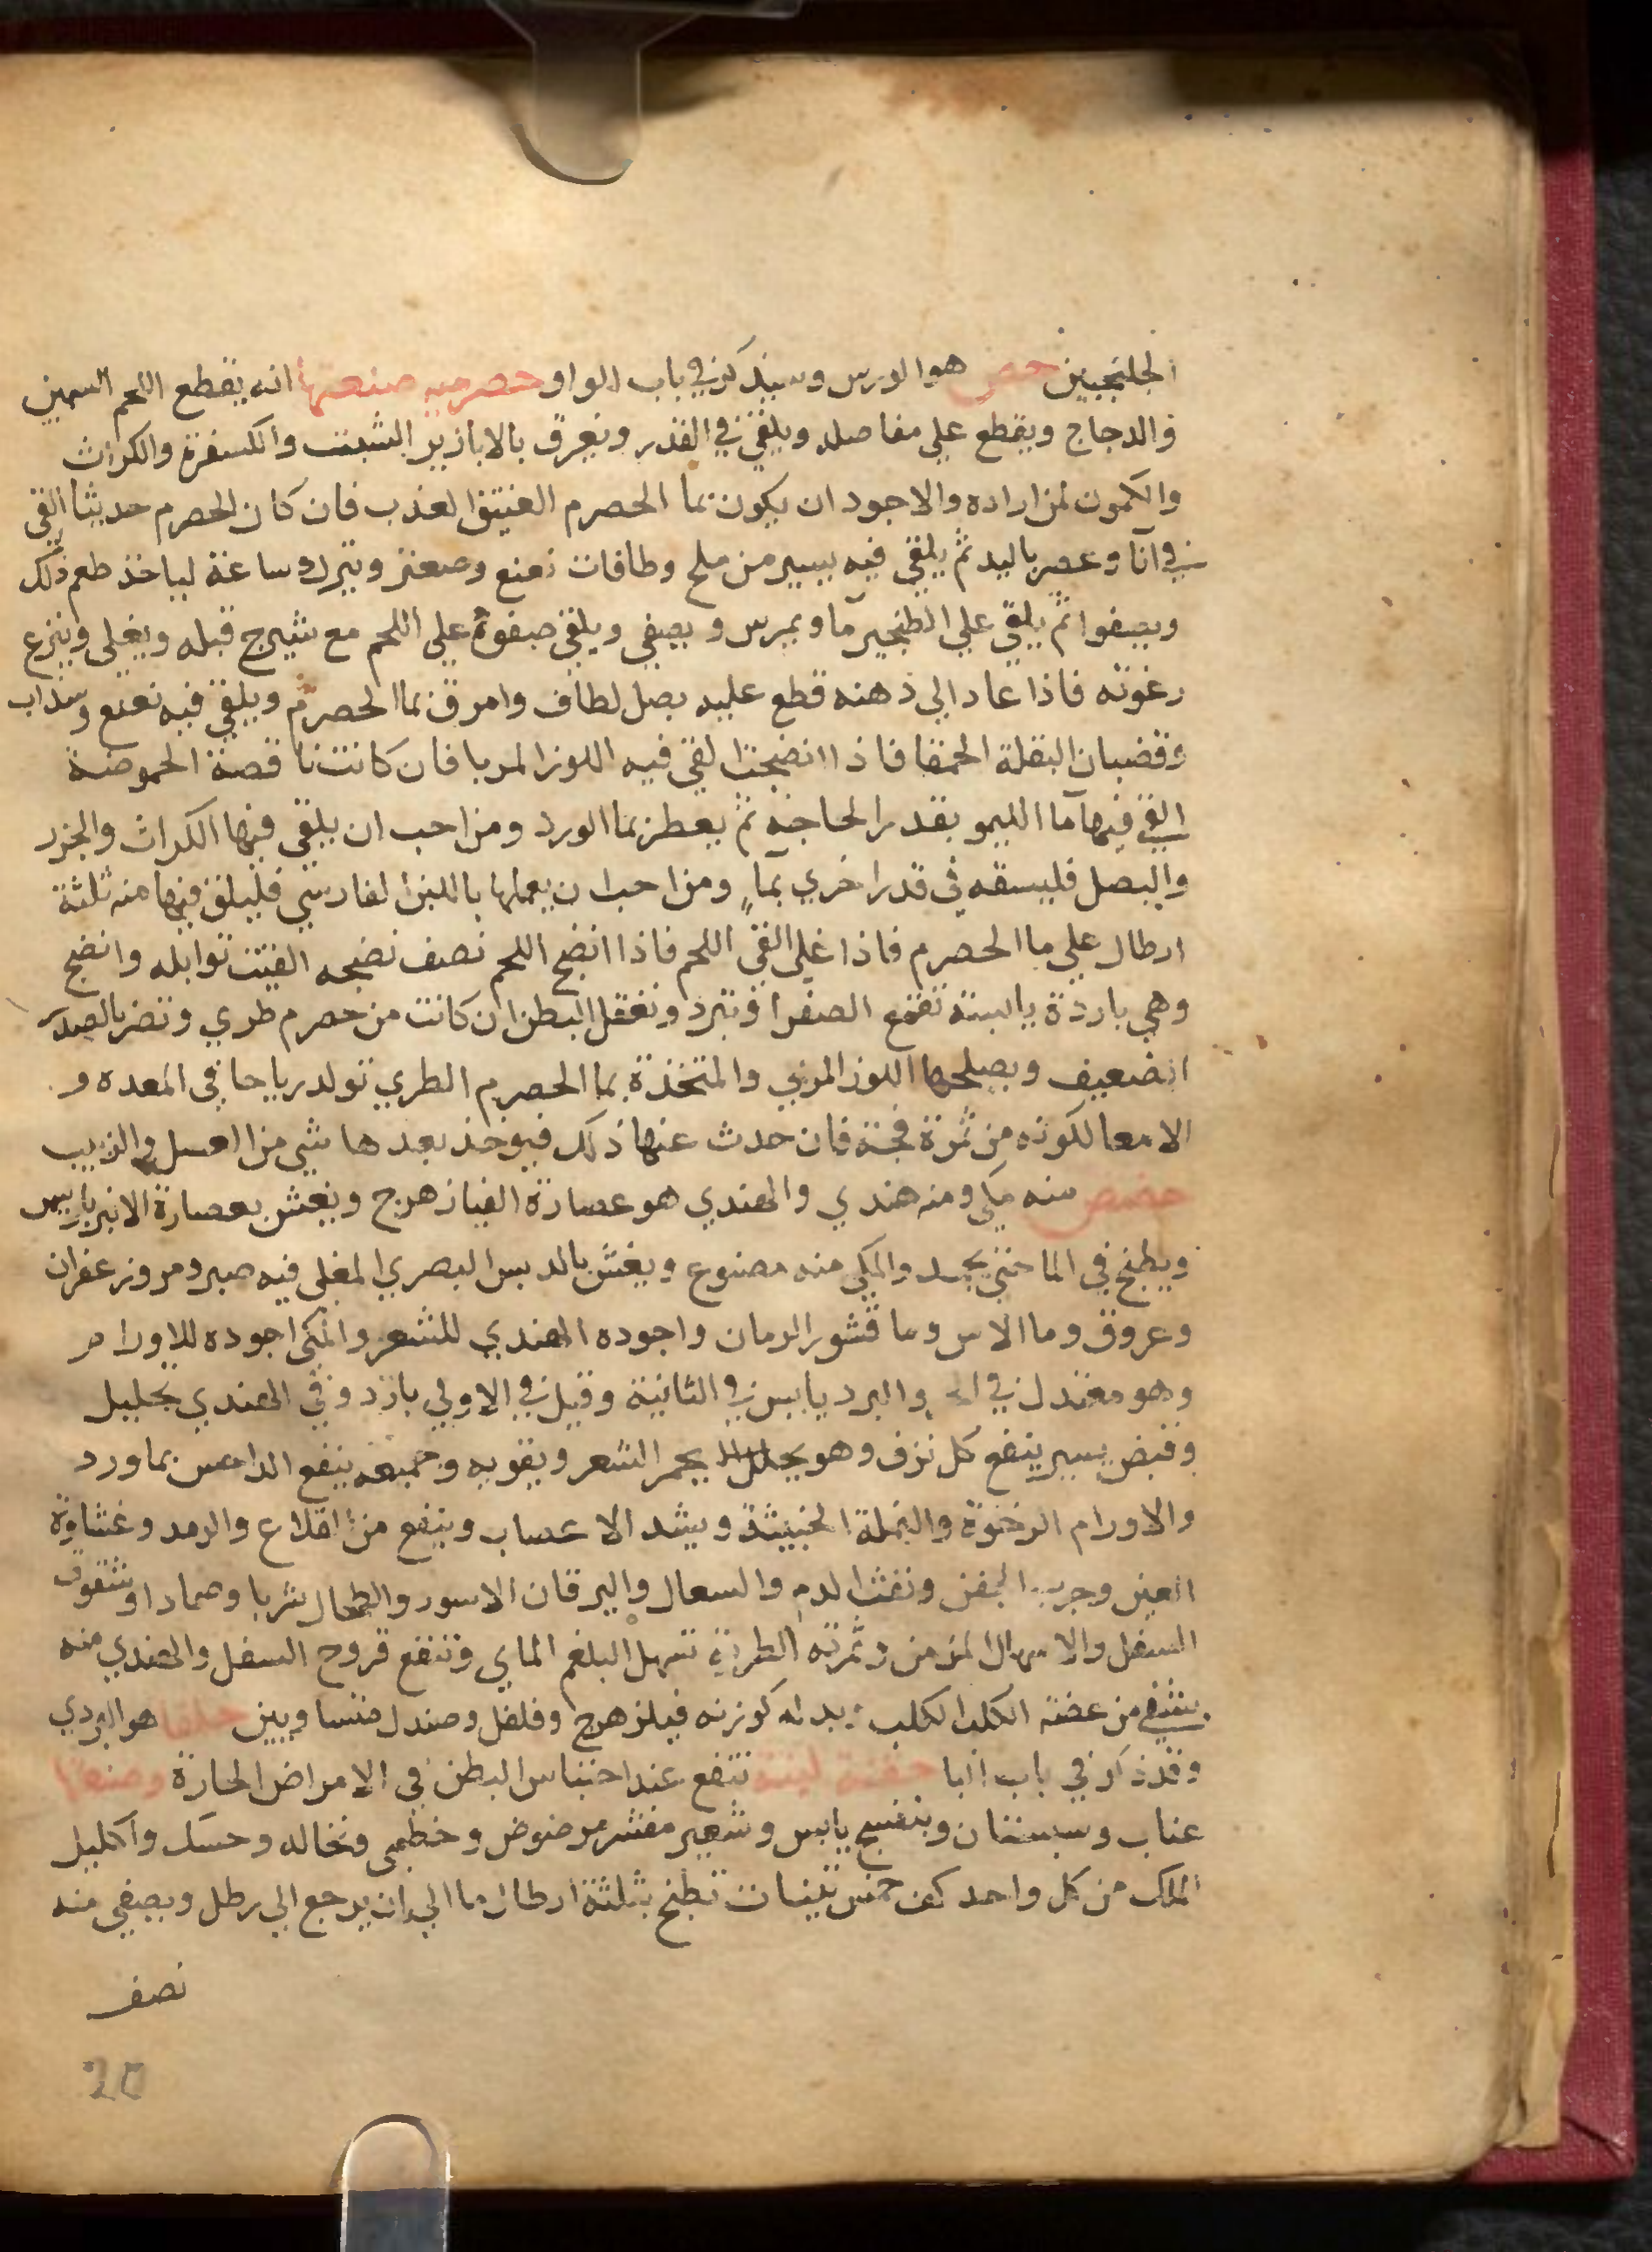 الجلنجبين حص هو الورس وسيذكر في باب الواو حصرميه صنعتها انه يقطع اللحم السمين
والدجاج ويقطع علي مفاصله ويلقي في القدر ويعرق بالابازير الشبت والكسفرة والكراث
والكمون لمن اراده والاجود ان يكون بما الحصرم العتيق العذب فان كان الحصرم حديثا القي
في آنا وعصر باليد ثم يلقي فيه يسير من ملح وطاقات نعنع وصعتر ويترك ساعة لياخذ طعم ذلك
ويصفوا ثم يلقي علي الطنجير ما ويمرس ويصفي ويلقي صفوة علي اللحم مع شيرج قبله ويغلي وينزع
رغوته فاذا عاد الي ذهنه قطع عليه بصل لطاف وامرق بما الحصرم ويلقي فيه نعنع وسذاب
وقضبان البقلة الحمقا فاذا انضجت القي فيه اللوز المربا فان كانت ناقصة الحموضة
القي فيها ما الليمو بقدر الحاجة ثم يعطر بما الورد ومن احب ان يلقي فيها الكراث والجزر
والبصل فليسقه في قدر اخري بما ومن احب ان يعملها باللبن الفارسي فليلق فيها منه ثلثة
ارطال علي ما الحصرم فاذا غلي القي اللحم فاذا انضج اللحم نصف نضجه القيت توابله وانضج
وهي باردة يابسة تقمع الصفرا وتبرد وتعقل البطن ان كانت من حصرم طري وتضر بالصدر
الضعيف ويصلحها اللوز المربي والمتخذة بما الحصرم الطري تولد رياحا في المعده و
الامعا لكونه من ثمرة فجة فان حدث عنها ذلك فيوخذ بعدها شي من العسل والزبيب
حضض منه مكي ومنه هندي والهندي هو عصارة الفيلزهرج ويغش بعصارة الانبرباريس
ويطبخ في الما حتي يجمد والمكي منه مصنوع ويغش بالدبس البصري المغلي فيه صبر ومر وزعفران
وعروق وما الاس وما قشور الرمان واجوده الهندي للشعر والمكي اجوده للاورام
وهو معتدل في الحر والبرد يابس في الثانية وقيل في الاولي بارد وفي الهندي تحليل
وقبض يسير ينفع كل نزف وهو يحلل يحمر الشعر ويقويه وجميعه ينفع الداحس بماورد
والاورام الرخوة والنملة الخبيثة ويشد الاعصاب وينفع من القلاع والرمد وغشاوة
العين وجرب الجفن ونفث الدم والسعال واليرقان الاسود والطحال شربا وضمادا وشقوق
السفل والاسهال المزمن وثمرته الطرية تسهل البلغم الماي وتنفع قروح السفل والهندي منه
يشفي من عضة الكلب الكلب وبدله كوزنه فيلزهرج وفلفل وصندل متساويين حلفا هو البردي
وقد ذكر في باب البا حقنة لينة تنفع عند احتباس البطن في الامراض الحارة وصنعتها
عناب وسبستان وبنفسج يابس وشعير مقشر مرضوض وخطمي ونخاله وحسك واكليل
الملك من كل واحد كف خمس تينات تطبخ بثلثة ارطال ما الي ان يرجع الي رطل ويصفي منه
نصف
20